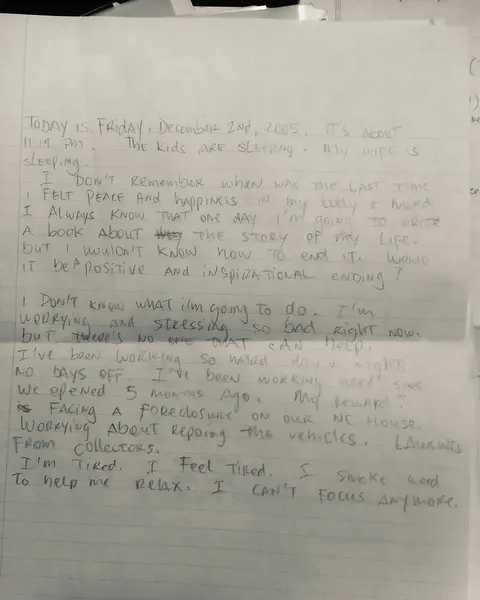 TODAY IS FRIDAY, December 2nd, 2005. IT'S ABOUT
11:19 PM. THE KIDS ARE SLEEPING. MY WIFE IS
SLEEPING.
I DON'T REMEMBER WHEN WAS THE LAST TIME
I FELT PEACE AND HAPPINESS IN MY BODY & MIND
I ALWAYS KNOW THAT ONE DAY I'M GOING TO WRITE
A BOOK ABOUT THE STORY OF MY LIFE.
BUT I WOULDN'T KNOW HOW TO END IT. WOULD
IT BE A POSITIVE AND INSPIRATIONAL ENDING?
I DON'T KNOW WHAT I'M GOING TO DO. I'M
WORRYING AND STRESSING SO BAD RIGHT NOW.
BUT THERE'S NO ONE THAT CAN HELP.
I'VE BEEN WORKING SO HARD DAY & NIGHT.
NO DAYS OFF. I'VE BEEN WORKING HARD SINCE
WE OPENED 5 MONTHS AGO. MY REWARD?
FACING A FORECLOSURE ON OUR NC HOUSE.
WORRYING ABOUT REPOING THE VEHICLES. LAWSUITS
FROM COLLECTORS.
I'M TIRED. I FEEL TIRED. I SMOKE WEED
TO HELP ME RELAX. I CAN'T FOCUS ANYMORE.